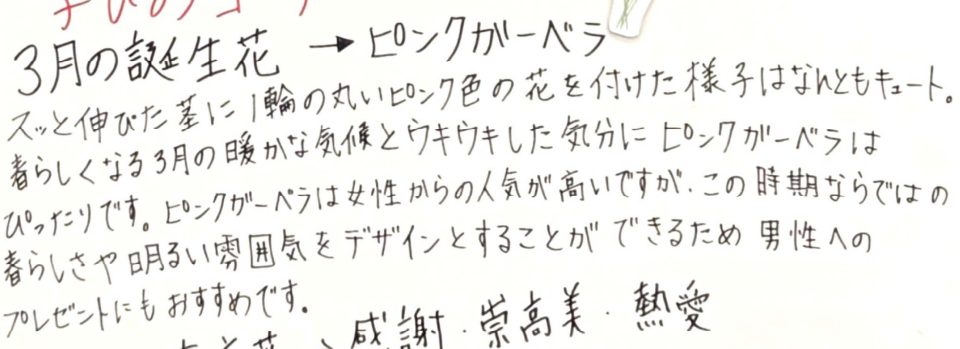 3月の誕生花 → ピンクガーベラ
スッと伸びた茎に1輪の丸いピンク色の花を付けた様子はなんともキュート。
春らしくなる3月の暖かな気候とウキウキした気分にピンクガーベラは
ぴったりです。ピンクガーベラは女性からの人気が高いですが、この時期ならではの
春らしさや明るい雰囲気をデザインとすることができるため男性への
プレゼントにもおすすめです。
感謝・崇高美・熱愛